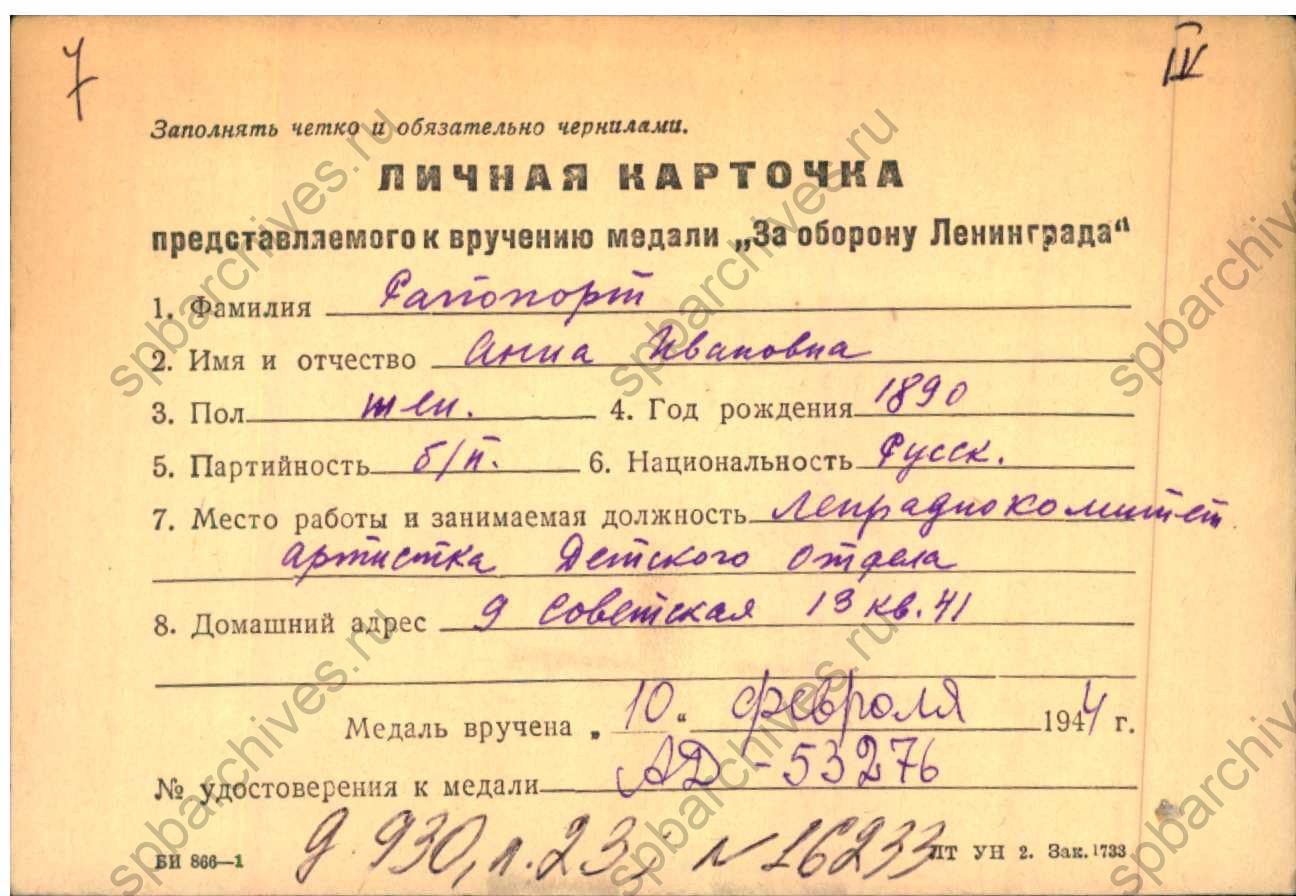 7
IV
Заполнять четко и обязательно чернилами.
ЛИЧНАЯ КАРТОЧКА
представляемого к вручению медали „За оборону Ленинграда“
1. Фамилия Рапопорт
2. Имя и отчество Анна Ивановна
3. Пол жен. 4. Год рождения 1890
5. Партийность б/п. 6. Национальность Русск.
7. Место работы и занимаемая должность Ленрадиокомитет
артистка Детского отдела
8. Домашний адрес 9 Советская 13 кв. 41
Медаль вручена „ 10 “ февроля 1944 г.
№ удостоверения к медали АД-53276
д. 930, л. 23; N 16233
БИ 866—1 ЛТ УН 2. Зак. 1733
spbarchives.ru
spbarchives.ru
spbarchives.ru
spbarchives.ru
spbarchives.ru
spbarchives.ru